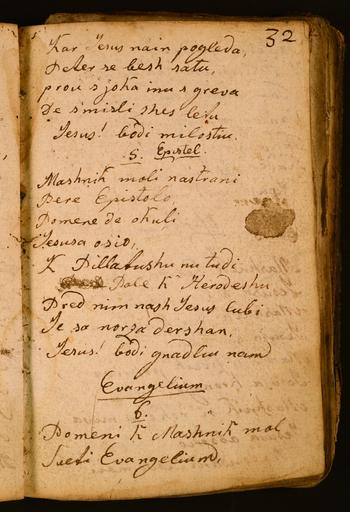 32
Kar Jesus nain pogleda,
Peter se besh satu,
prou s'joka inu s'greva
De s'misli shes letu
Jesus! bodi milostiu.
5. Epistel.
Mashnik moli nastrani
Bere Epistolo
Pomene de okuli
Jesusa osio,
K' Pillatushu nu tudi
Pole k' Herodeshu
Pred nim nash Jesus lubi
Je sa norza dershan,
Jesus! bodi gnadliu nam
Evangelium
6.
Pomeni k Mashnik mol
Sveti Evangelium,